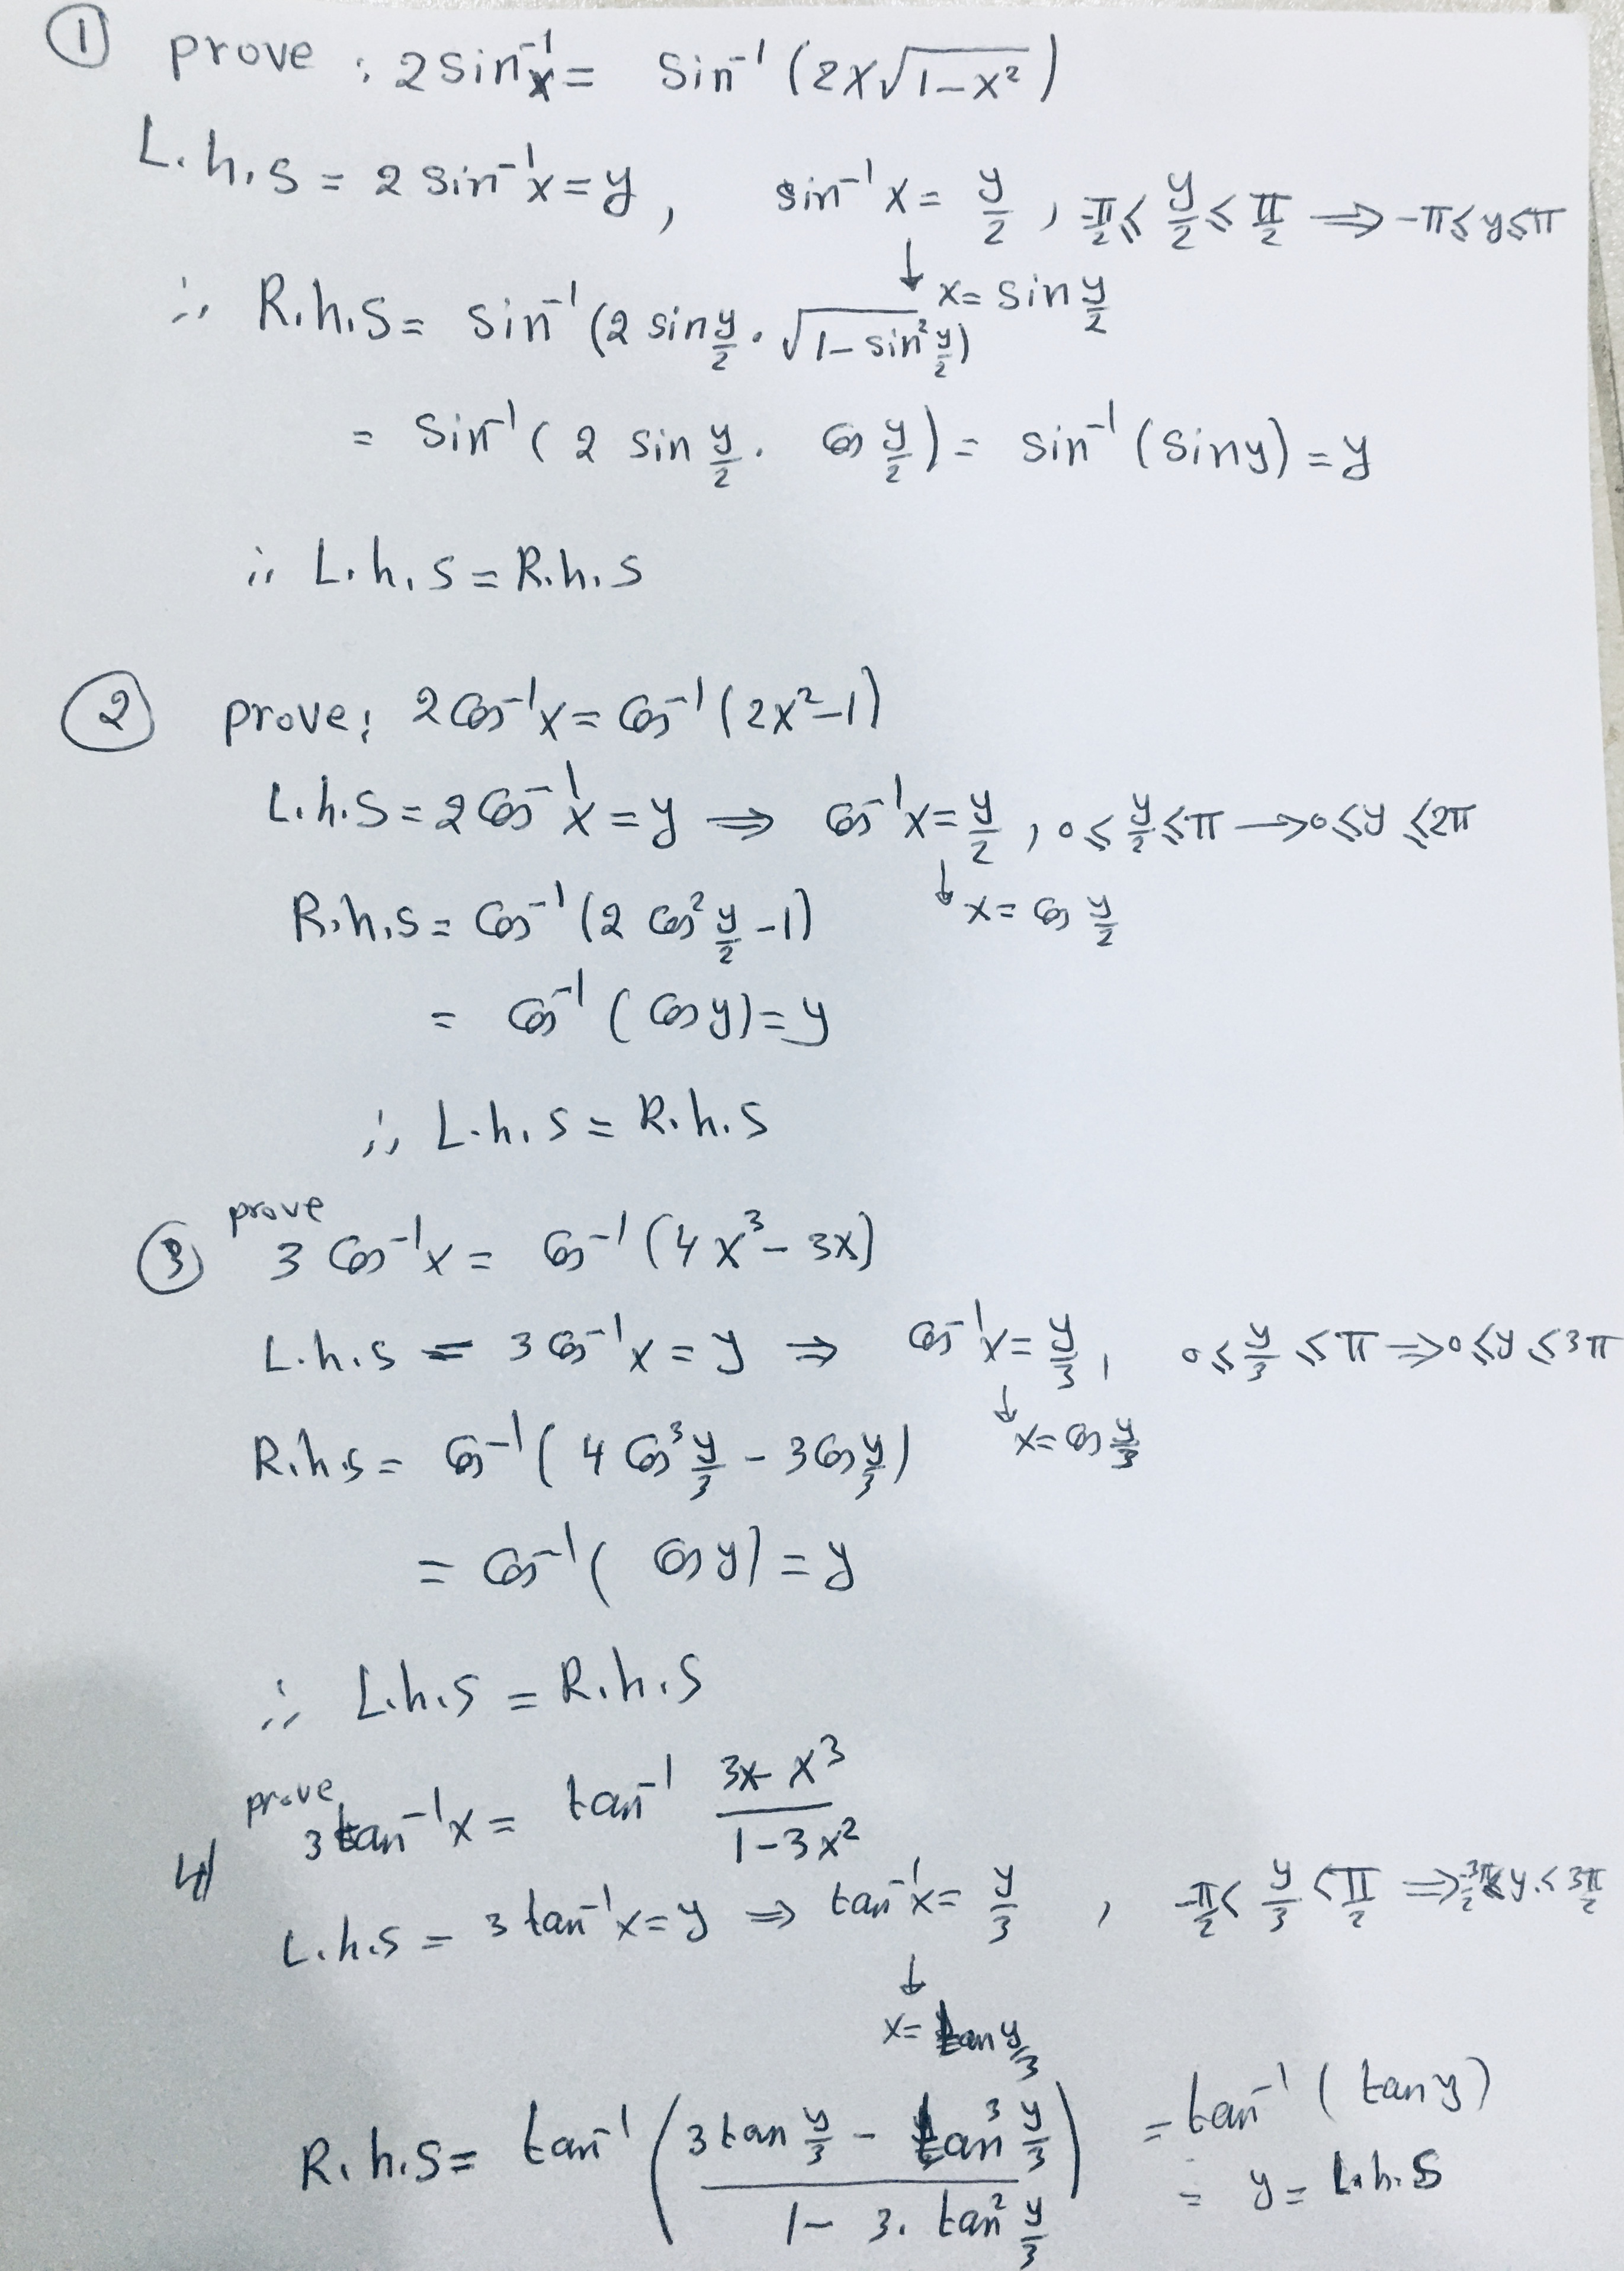 ① prove : 2 sin⁻¹x = sin⁻¹ (2x√(1-x²))
L.h.S = 2 sin⁻¹x = y , sin⁻¹x = y/2 , -π/2 ≤ y/2 ≤ π/2 ⟹ -π ≤ y ≤ π
↓ x = sin y/2
∴ R.h.S = sin⁻¹ (2 sin y/2 · √(1 - sin² y/2))
= sin⁻¹ (2 sin y/2 · cos y/2) = sin⁻¹ (sin y) = y
∴ L.h.S = R.h.S
② prove : 2 cos⁻¹x = cos⁻¹ (2x²-1)
L.h.S = 2 cos⁻¹x = y ⟹ cos⁻¹x = y/2 , 0 ≤ y/2 ≤ π → 0 ≤ y ≤ 2π
↓ x = cos y/2
R.h.S = cos⁻¹ (2 cos² y/2 - 1)
= cos⁻¹ (cos y) = y
∴ L.h.S = R.h.S
prove
③ 3 cos⁻¹x = cos⁻¹ (4x³ - 3x)
L.h.S = 3 cos⁻¹x = y ⇒ cos⁻¹x = y/3 , 0 ≤ y/3 ≤ π ⇒ 0 ≤ y ≤ 3π
↓ x = cos y/3
R.h.S = cos⁻¹ (4 cos³ y/3 - 3 cos y/3)
= cos⁻¹ (cos y) = y
∴ L.h.S = R.h.S
prove
4) 3 tan⁻¹x = tan⁻¹ (3x - x³)/(1 - 3x²)
L.h.S = 3 tan⁻¹x = y ⇒ tan⁻¹x = y/3 , -π/2 < y/3 < π/2 ⇒ -3π/2 < y < 3π/2
↓
x = tan y/3
R.h.S = tan⁻¹ ((3 tan y/3 - tan³ y/3)/(1 - 3. tan² y/3)) = tan⁻¹ (tan y)
= y = L.h.S